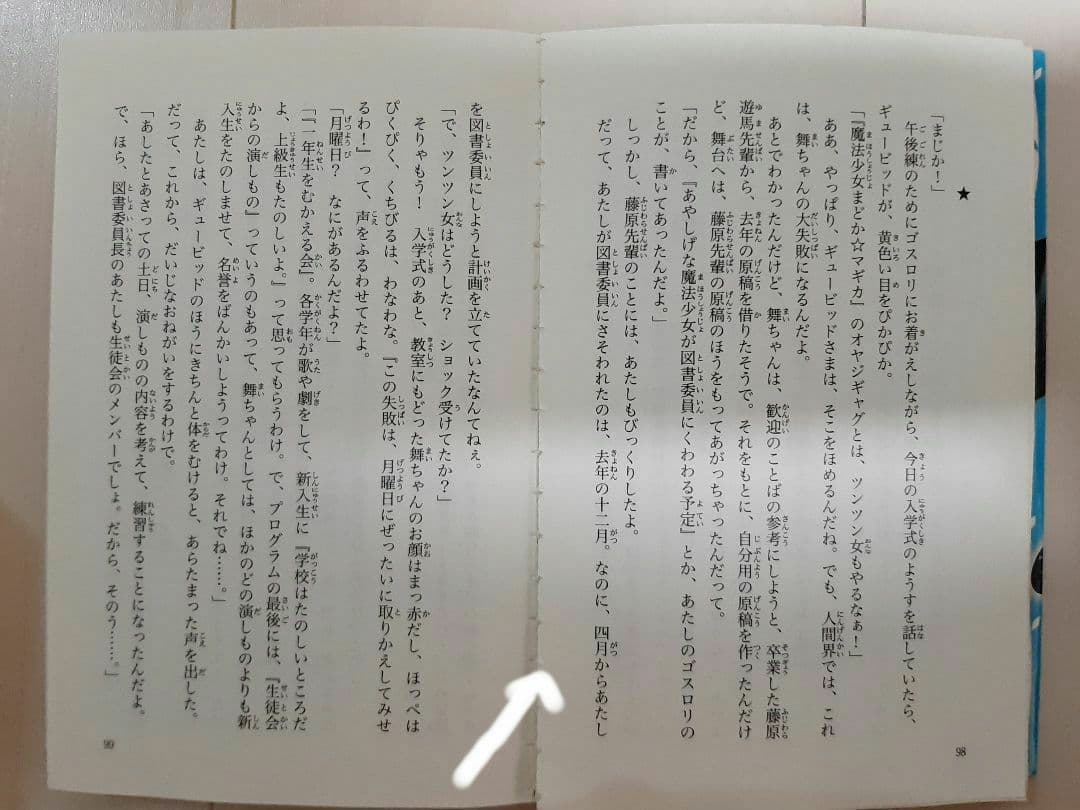 ★
「まじか！」
午後練のためにゴスロリにお着がえしながら、今日の入学式のようすを話していたら、
ギュービッドが、黄色い目をぴかぴか。
「『魔法少女まどか☆マギカ』のオヤジギャグとは、ツンツン女もやるなぁ！」
ああ、やっぱり、ギュービッドさまは、そこをほめるんだね。でも、人間界では、これ
は、舞ちゃんの大失敗になるんだよ。
あとでわかったんだけど、舞ちゃんは、歓迎のことばの参考にしようと、卒業した藤原
遊馬先輩から、去年の原稿を借りたそうで。それをもとに、自分用の原稿を作ったんだけ
ど、舞台へは、藤原先輩の原稿のほうをもってあがっちゃったんだって。
「だから、『あやしげな魔法少女が図書委員にくわわる予定』とか、あたしのゴスロリの
ことが、書いてあったんだよ。」
しっかし、藤原先輩のことには、あたしもびっくりしたよ。
だって、あたしが図書委員にさそわれたのは、去年の十二月。なのに、四月からあたし
98
を図書委員にしようと計画を立てていたなんてねぇ。
「で、ツンツン女はどうした？　ショック受けてたか？」
そりゃもう！　入学式のあと、教室にもどった舞ちゃんのお顔はまっ赤だし、ほっぺは
ぴくぴく、くちびるは、わなわな。『この失敗は、月曜日にぜったいに取りかえしてみせ
るわ！』って、声をふるわせてたよ。
「月曜日？　なにがあるんだよ？」
「『一年生をむかえる会』。各学年が歌や劇をして、新入生に『学校はたのしいところだ
よ、上級生もたのしいよ。』って思ってもらうわけ。で、プログラムの最後には、『生徒会
からの演しもの』っていうのもあって、舞ちゃんとしては、ほかのどの演しものよりも新
入生をたのしませて、名誉をばんかいしようってわけ。それでね……。」
あたしは、ギュービッドのほうにきちんと体をむけると、あらたまった声を出した。
だって、これから、だいじなおねがいをするわけで。
「あしたとあさっての土日、演しものの内容を考えて、練習することになったんだよ。
で、ほら、図書委員長のあたしも生徒会のメンバーでしょ。だから、そのう……。」
99